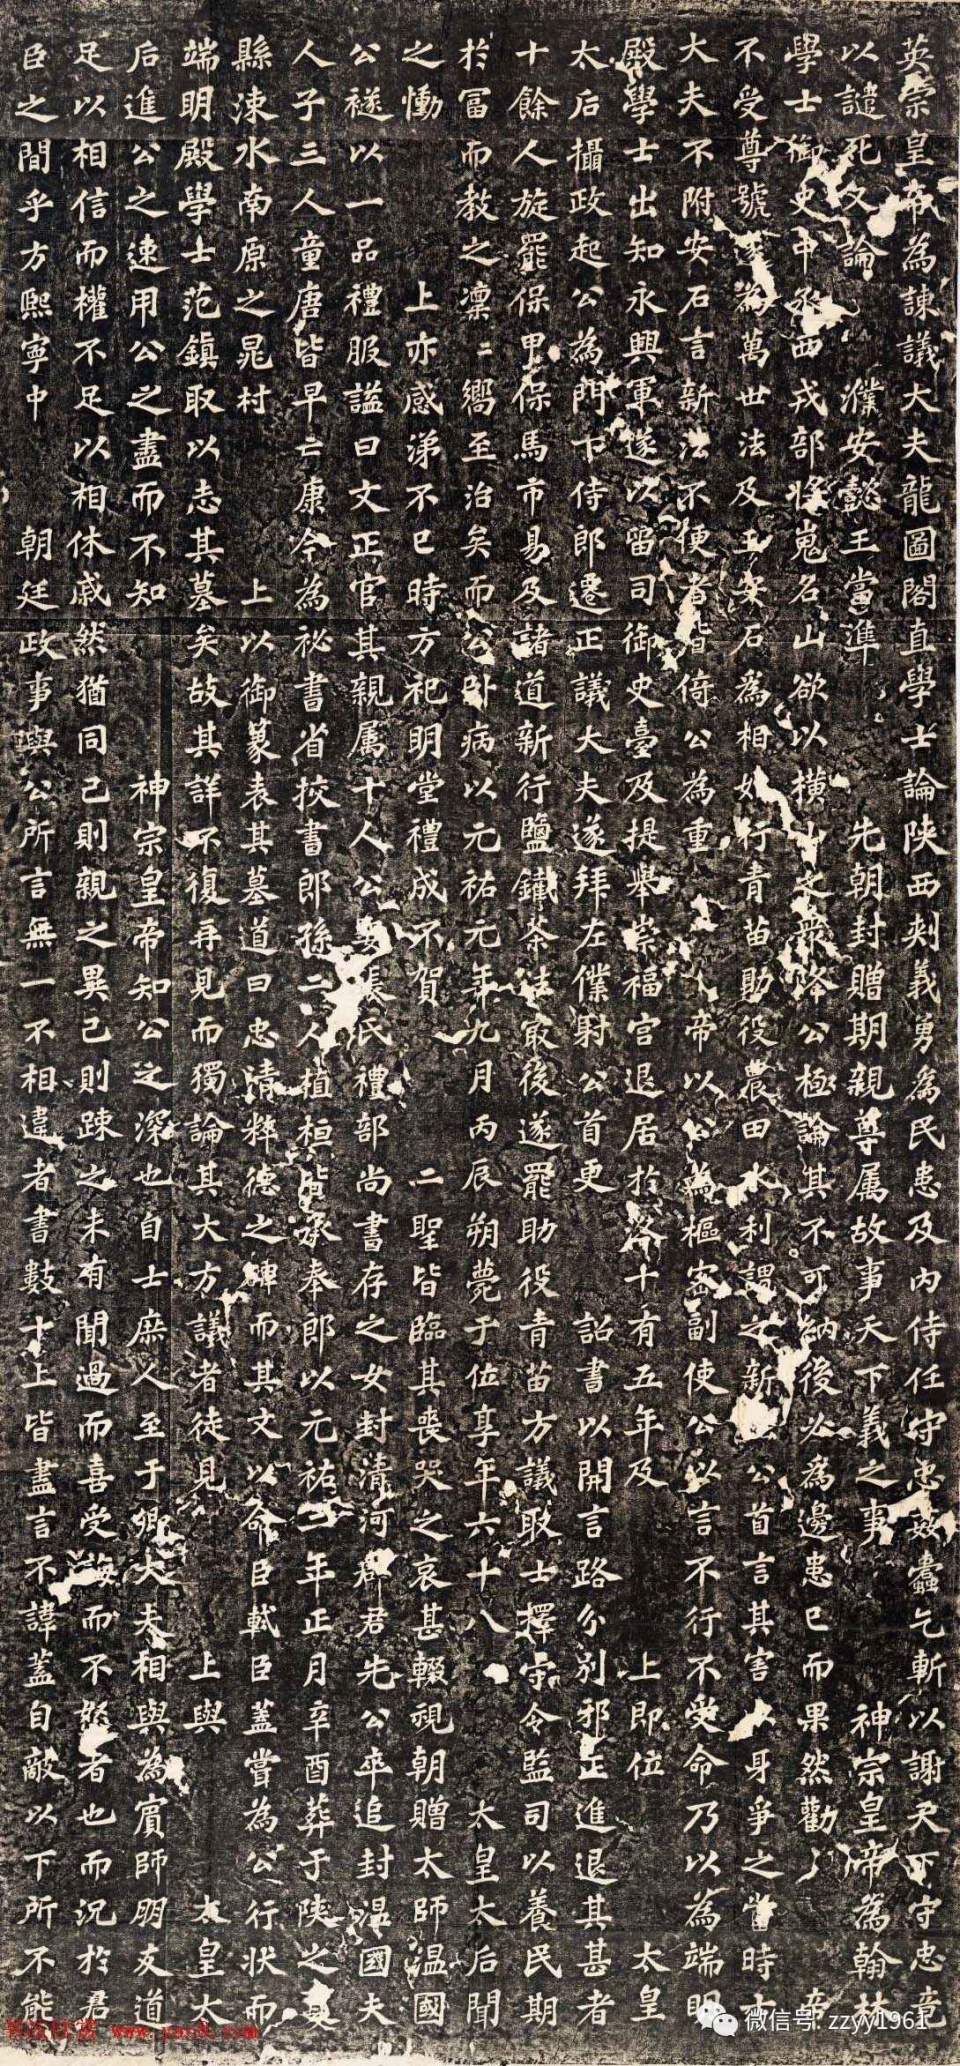 英宗皇帝為諫議大夫龍圖閣直學士論陝西刺義勇為民患及內侍任守忠姦蠹乞斬以謝天下守忠竟
以譴死又論濮安懿王當準先朝封贈期親尊屬故事天下義之事神宗皇帝為翰林
學士御史中丞西戎部將嵬名山欲以橫山之衆降公極論其不可納後必為邊患已而果然勸
不受尊號遂為萬世法及王安石為相始行青苗助役農田水利謂之新法公首言其害以身爭之當時士
大夫不附安石言新法不便者皆倚公為重帝以公為樞密副使公以言不行不受命乃以為端明
殿學士出知永興軍遂以留司御史臺及提舉崇福宮退居於洛十有五年及上即位太皇
太后攝政起公為門下侍郎遷正議大夫遂拜左僕射公首更詔書以開言路分別邪正進退其甚者
十餘人旋罷保甲保馬市易及諸道新行鹽鐵茶法最後遂罷助役青苗方議取士擇守令監司以養民期
於富而教之凜〻嚮至治矣而公卧病以元祐元年九月丙辰朔薨于位享年六十八太皇太后聞
之慟上亦感涕不已時方祀明堂禮成不賀二聖皆臨其喪哭之哀甚輟視朝贈太師溫國
公襚以一品禮服謚曰文正官其親属十人公娶張氏禮部尚書存之女封清河郡君先公卒追封溫國夫
人子三人童唐皆早亡康今為祕書省挍書郎孫二人植桓皆承奉郎以元祐二年正月辛酉葬于陝之夏
縣涑水南原之晁村上以御篆表其墓道曰忠清粹德之碑而其文以命臣軾臣蓋嘗為公行狀而
端明殿學士范鎮取以志其墓矣故其詳不復再見而獨論其大方議者徒見上與太皇太
后進公之速用公之盡而不知神宗皇帝知公之深也自士庶人至于卿大夫相與為賓師朋友道
足以相信而權不足以相休戚然猶同己則親之異己則踈之未有聞過而喜受誨而不怒者也而況於君
臣之間乎方熙寧中朝廷政事與公所言無一不相違者書數十上皆盡言不諱蓋自敵以下所不能
微信号: zzyy1961